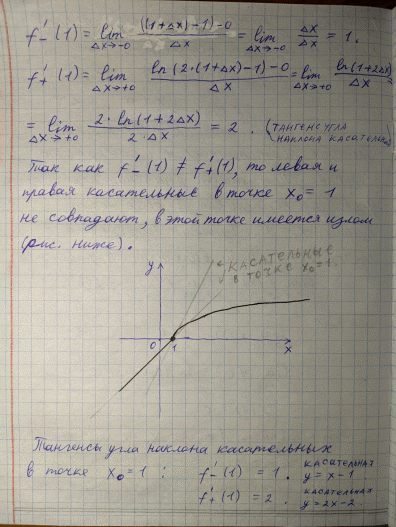 f'₋(1) = lim Δx→-0 ((1+Δx)-1)-0 / Δx = lim Δx→-0 Δx/Δx = 1.
f'₊(1) = lim Δx→+0 ln(2·(1+Δx)-1)-0 / Δx = lim Δx→+0 ln(1+2Δx) / Δx
= lim Δx→+0 2·ln(1+2Δx) / 2·Δx = 2. (ТАНГЕНС УГЛА
НАКЛОНА КАСАТЕЛЬНОЙ)
Так как f'₋(1) ≠ f'₊(1), то левая и
правая касательные в точке x₀ = 1
не совпадают, в этой точке имеется излом
(рис. ниже).
y
КАСАТЕЛЬНЫЕ
В ТОЧКЕ x₀=1.
0 1 x
Тангенсы угла наклона касательных
в точке x₀ = 1 : f'₋(1) = 1. КАСАТЕЛЬНАЯ
y = x - 1
f'₊(1) = 2. КАСАТЕЛЬНАЯ
y = 2x - 2.